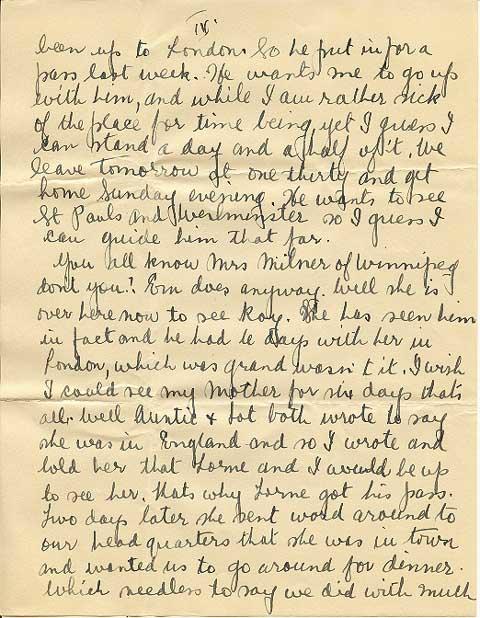 IV.
been up to London. So he put in for a
pass last week. He wants me to go up
with him, and while I am rather sick
of the place for time being, yet I guess I
can stand a day and a half of it. We
leave tomorrow at one thirty and get
home Sunday evening. He wants to see
St Pauls and Wesminster so I guess I
can guide him that far.
You all know Mrs Milner of Winnipeg
dont you? Em does anyway. Well she is
over here now to see Roy. She has seen him
in fact and he had 6 days with her in
London, which was grand wasn't it. I wish
I could see my Mother for six days thats
all. Well Auntie & Dot both wrote to say
she was in England and so I wrote and
told her that Lorne and I would be up
to see her. Thats why Lorne got his pass.
Two days later she sent word around to
our head quarters that she was in town
and wanted us to go around for dinner.
Which needless to say we did with much